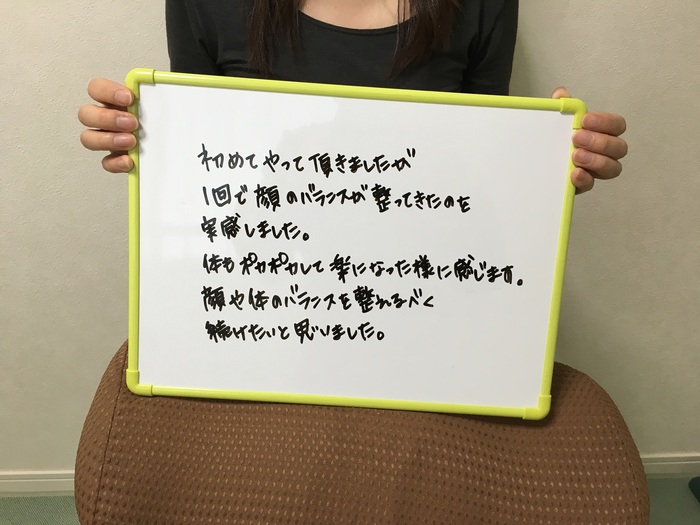 初めてやって頂きましたが
1回で顔のバランスが整ってきたのを
実感しました。
体もポカポカして楽になった様に感じます。
顔や体のバランスを整えるべく
続けたいと思いました。